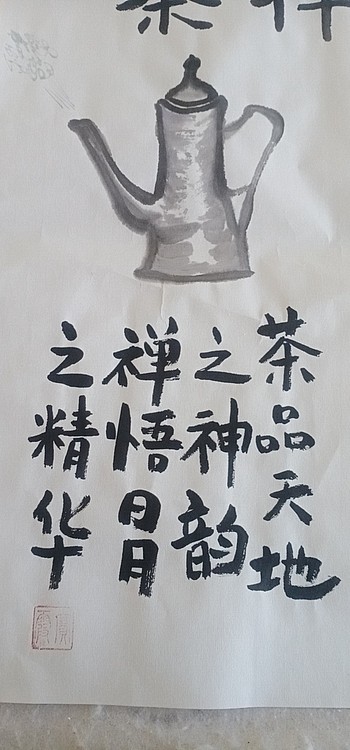 茶品天地
之神韵
禅悟日月
之精华